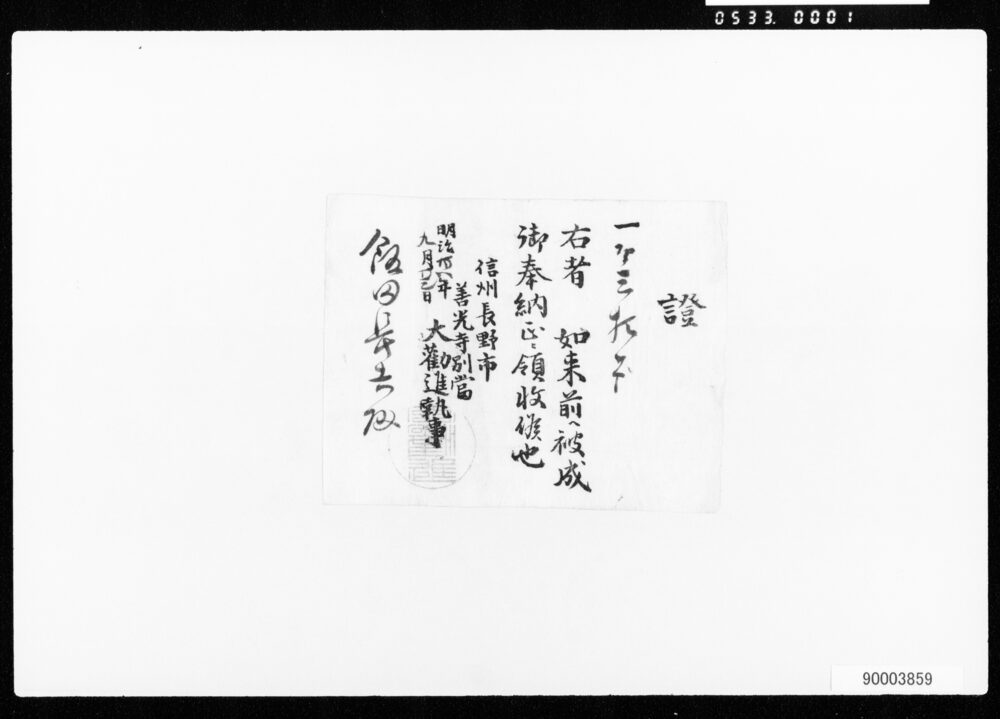 0533. 0001
證
一金三拾
右者 如来前へ被成
御奉納正ニ領收候也
信州長野市
善光寺別當
大勸進執事
明治四十年
九月廿三日
飯田長吉殿
90003859